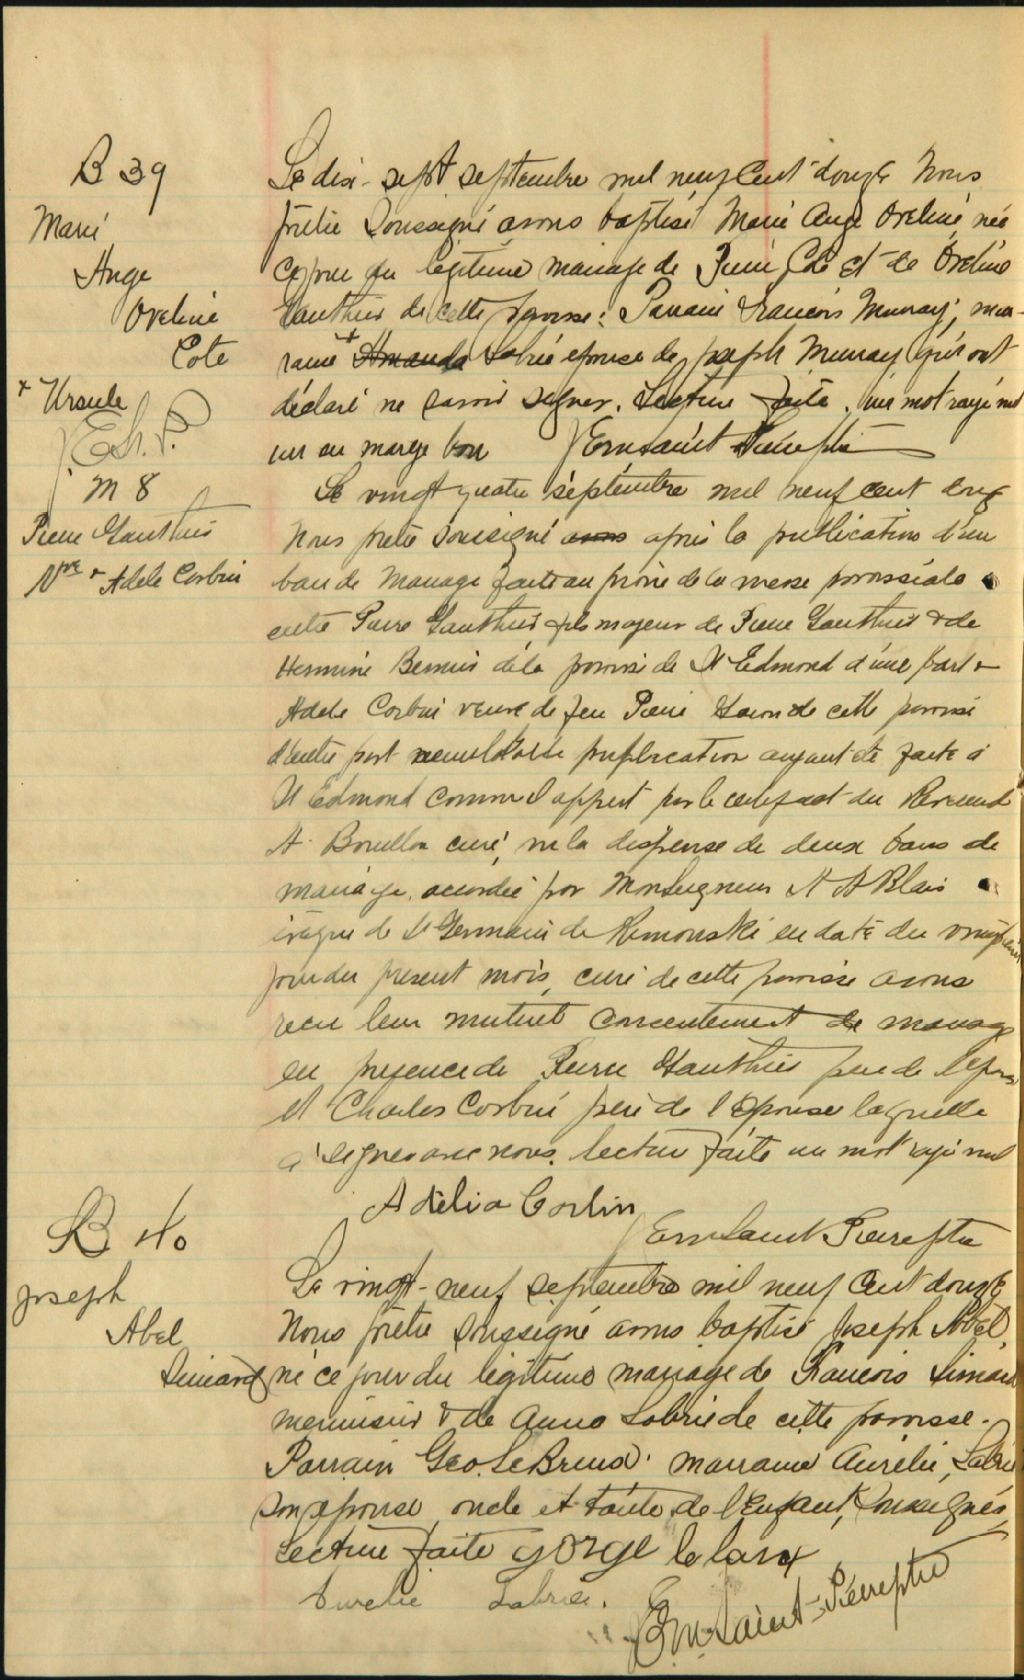 B 39
Marie
Ange
Oveline
Cote
+ Ursule
J E St. P.
Le dix-sept septembre mil neuf cent douze Nous
prêtre soussigné avons baptisé Marie Ange Oveline, née
ce jour du légitime mariage de Pierre Coté et de Oveline
Gauthier de cette paroisse. Parrain Francois Munray, mar-
raine + Amanda Labrie epouse de Joseph Munray qui ont
déclaré ne savoir signer. Lecture faite. un mot rayé nul
un en marge bon J Ern Saint Pierre ptre
M 8
Pierre Gauthier
& Adele Corbin
Le vingt quatre septembre mil neuf cent douze
Nous prêtre soussigné avons après la publication d'un
ban de mariage faite au prone de la messe paroissiale
entre Pierre Gauthier fils majeur de Pierre Gauthier & de
Hermine de la paroisse de St Edmond d'une part &
Adele Corbin veuve de feu Pierre de cette paroisse
d'autre part semblable publication ayant été faite à
St Edmond comme il appert par le certificat du Révérend
A. Bouillon curé, vu la dispense de deux bans de
mariage accordée par Monseigneur A A Blais
évêque de St Germain de Rimouski en date du
jour du present mois, curé de cette paroisse avons
recu leur mutuel concentement de mariage
en presence de Pierre Gauthier pere de l'epoux
et Charles Corbin père de l'épouse laquelle
a signé avec nous. lecture faite un mot rayé nul
Adélia Corbin
J Ern Saint Pierre ptre
B 40
Joseph
Abel
Simard
Le vingt-neuf septembre mil neuf cent douze
Nous prêtre soussigné avons baptisé Joseph Abel
né ce jour du légitime mariage de Francois Simard
menuisier & de Anna Labrie de cette paroisse.
Parrain Geo. LeBreux. marraine Aurélie Labrie
son epouse oncle et tante de l'enfant, soussignés,
Lecture faite gorge
Aurelie Labrie.
J Ern Saint-Pierre ptre